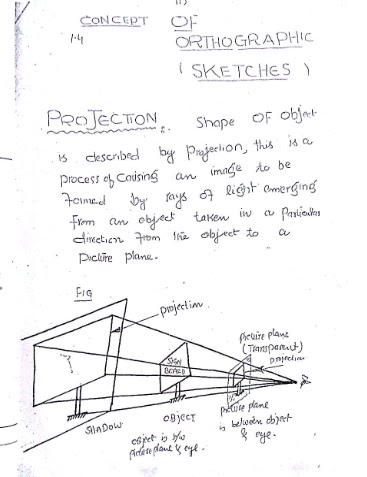 CONCEPT OF
1.4
ORTHOGRAPHIC
( SKETCHES )
PROJECTION : Shape OF Object
is described by Projection, this is a
Process of Causing an image to be
Formed by rays of light emerging
From an object taken in a Particular
direction From the object to a
Picture plane.
FIG
projection.
Picture plane
(Transparent)
projection
SIGN
BOARD
SHADOW
OBJECT
object is b/w
Picture plane & eye.
picture plane
is between object
& eye.